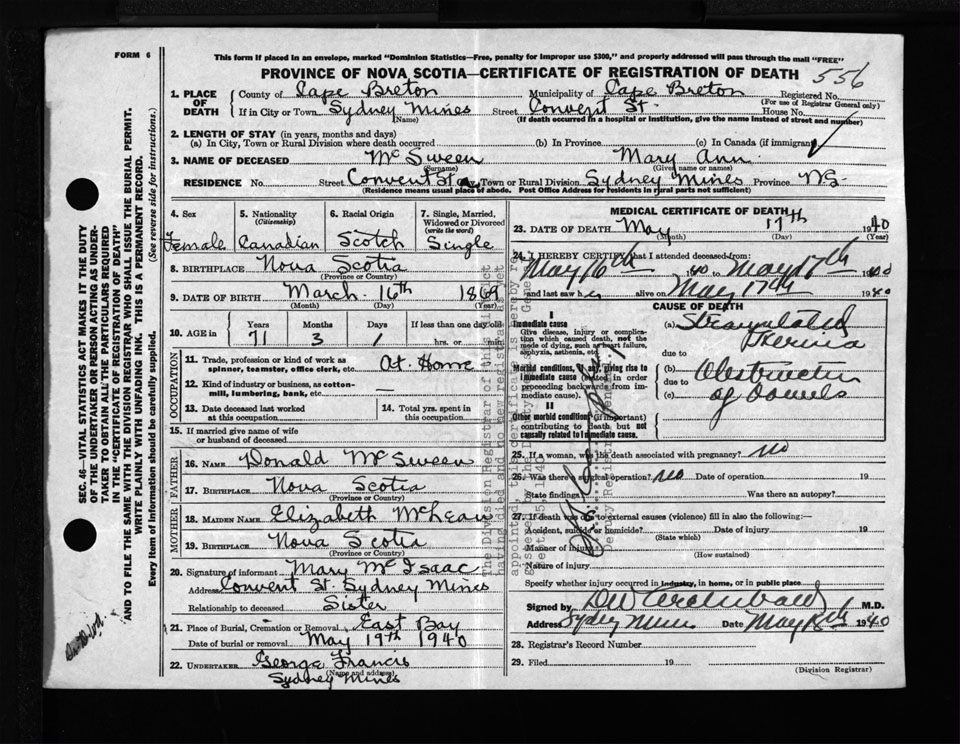 FORM 6
This form if placed in an envelope, marked "Dominion Statistics—Free, penalty for improper use $300," and properly addressed will pass through the mail "FREE"
PROVINCE OF NOVA SCOTIA—CERTIFICATE OF REGISTRATION OF DEATH
556
1. PLACE OF DEATH County of Cape Breton Municipality of Cape Breton Registered No.
(For use of Registrar General only)
If in City or Town Sydney Mines Street Convent St. House No.
(Name) (If death occurred in a hospital or institution, give the name instead of street and number)
2. LENGTH OF STAY (in years, months and days)
(a) In City, Town or Rural Division where death occurred (b) In Province (c) In Canada (if immigrant)
3. NAME OF DECEASED McSween Mary Ann
(Surname) (Given name or names)
RESIDENCE No. Street Convent St City, Town or Rural Division Sydney Mines Province N.S.
(Residence means usual place of abode. Post Office Address for residents in rural parts not sufficient)
4. Sex Female
5. Nationality (Citizenship) Canadian
6. Racial Origin Scotch
7. Single, Married, Widowed or Divorced (write the word) Single
8. BIRTHPLACE Nova Scotia
(Province or Country)
9. DATE OF BIRTH March 16th 1869
(Month) (Day) (Year)
10. AGE in Years Months Days If less than one day old
71 3 1 hrs. or min.
OCCUPATION
11. Trade, profession or kind of work as spinner, teamster, office clerk, etc. At Home
12. Kind of industry or business, as cotton-mill, lumbering, bank, etc. —
13. Date deceased last worked at this occupation
14. Total yrs. spent in this occupation
15. If married give name of wife or husband of deceased
FATHER
16. NAME Donald McSween
17. BIRTHPLACE Nova Scotia
(Province or Country)
MOTHER
18. MAIDEN NAME Elizabeth McLean
19. BIRTHPLACE Nova Scotia
(Province or Country)
20. Signature of informant Mary McIsaac
Address Convent St. Sydney Mines
Relationship to deceased Sister
21. Place of Burial, Cremation or Removal East Bay
Date of burial or removal May 19th 1940
22. UNDERTAKER George Francis
(Name and address)
Sydney Mines
MEDICAL CERTIFICATE OF DEATH
23. DATE OF DEATH May 17th 1940
(Month) (Day) (Year)
24. I HEREBY CERTIFY that I attended deceased from:
May 16th 1940 to May 17th 1940
and last saw her alive on May 17th 1940
CAUSE OF DEATH
I
Immediate cause
Give disease, injury or complication which caused death, not the mode of dying, such as heart failure, asphyxia, asthenia, etc.
(a) Strangulated Hernia
due to
Morbid conditions, if any, giving rise to immediate cause (stated in order proceeding backwards from immediate cause).
(b) Obstruction
due to
(c) of bowels
II
Other morbid conditions (if important) contributing to death but not causally related to immediate cause.
25. If a woman, was the death associated with pregnancy? no
26. Was there a surgical operation? no Date of operation 19
State findings Was there an autopsy?
27. If death was due to external causes (violence) fill in also the following:—
Accident, suicide or homicide? Date of injury 19
(State which)
Manner of injury
(How sustained)
Nature of injury
Specify whether injury occurred in industry, in home, or in public place
Signed by DW Archibald M.D.
Address Sydney Mines Date May 18th 1940
28. Registrar's Record Number
29. Filed 19
(Division Registrar)
SEC. 46—VITAL STATISTICS ACT MAKES IT THE DUTY
OF THE UNDERTAKER OR PERSON ACTING AS UNDER-
TAKER TO OBTAIN ALL THE PARTICULARS REQUIRED
IN THE "CERTIFICATE OF REGISTRATION OF DEATH"
AND TO FILE THE SAME WITH THE DIVISION REGISTRAR WHO SHALL ISSUE THE BURIAL PERMIT.
WRITE PLAINLY WITH UNFADING INK. THIS IS A PERMANENT RECORD.
Every item of information should be carefully supplied. (See reverse side for instructions.)